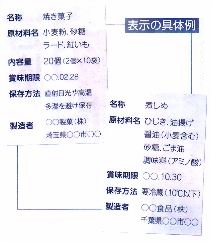 表示の具体例
名称 焼き菓子
原材料名 小麦粉、砂糖
ラード、紅いも
内容量 20個(2個×10袋)
賞味期限 〇〇.02.28
保存方法 直射日光や高温
多湿を避け保存
製造者 〇〇製菓(株)
埼玉県〇〇市〇〇
名称 煮しめ
原材料名 ひじき、油揚げ
醤油(小麦含む)
砂糖、ごま油
調味料(アミノ酸)
賞味期限 〇〇.10.30
保存方法 要冷蔵(10℃以下)
製造者 〇〇食品(株)
千葉県〇〇市〇〇